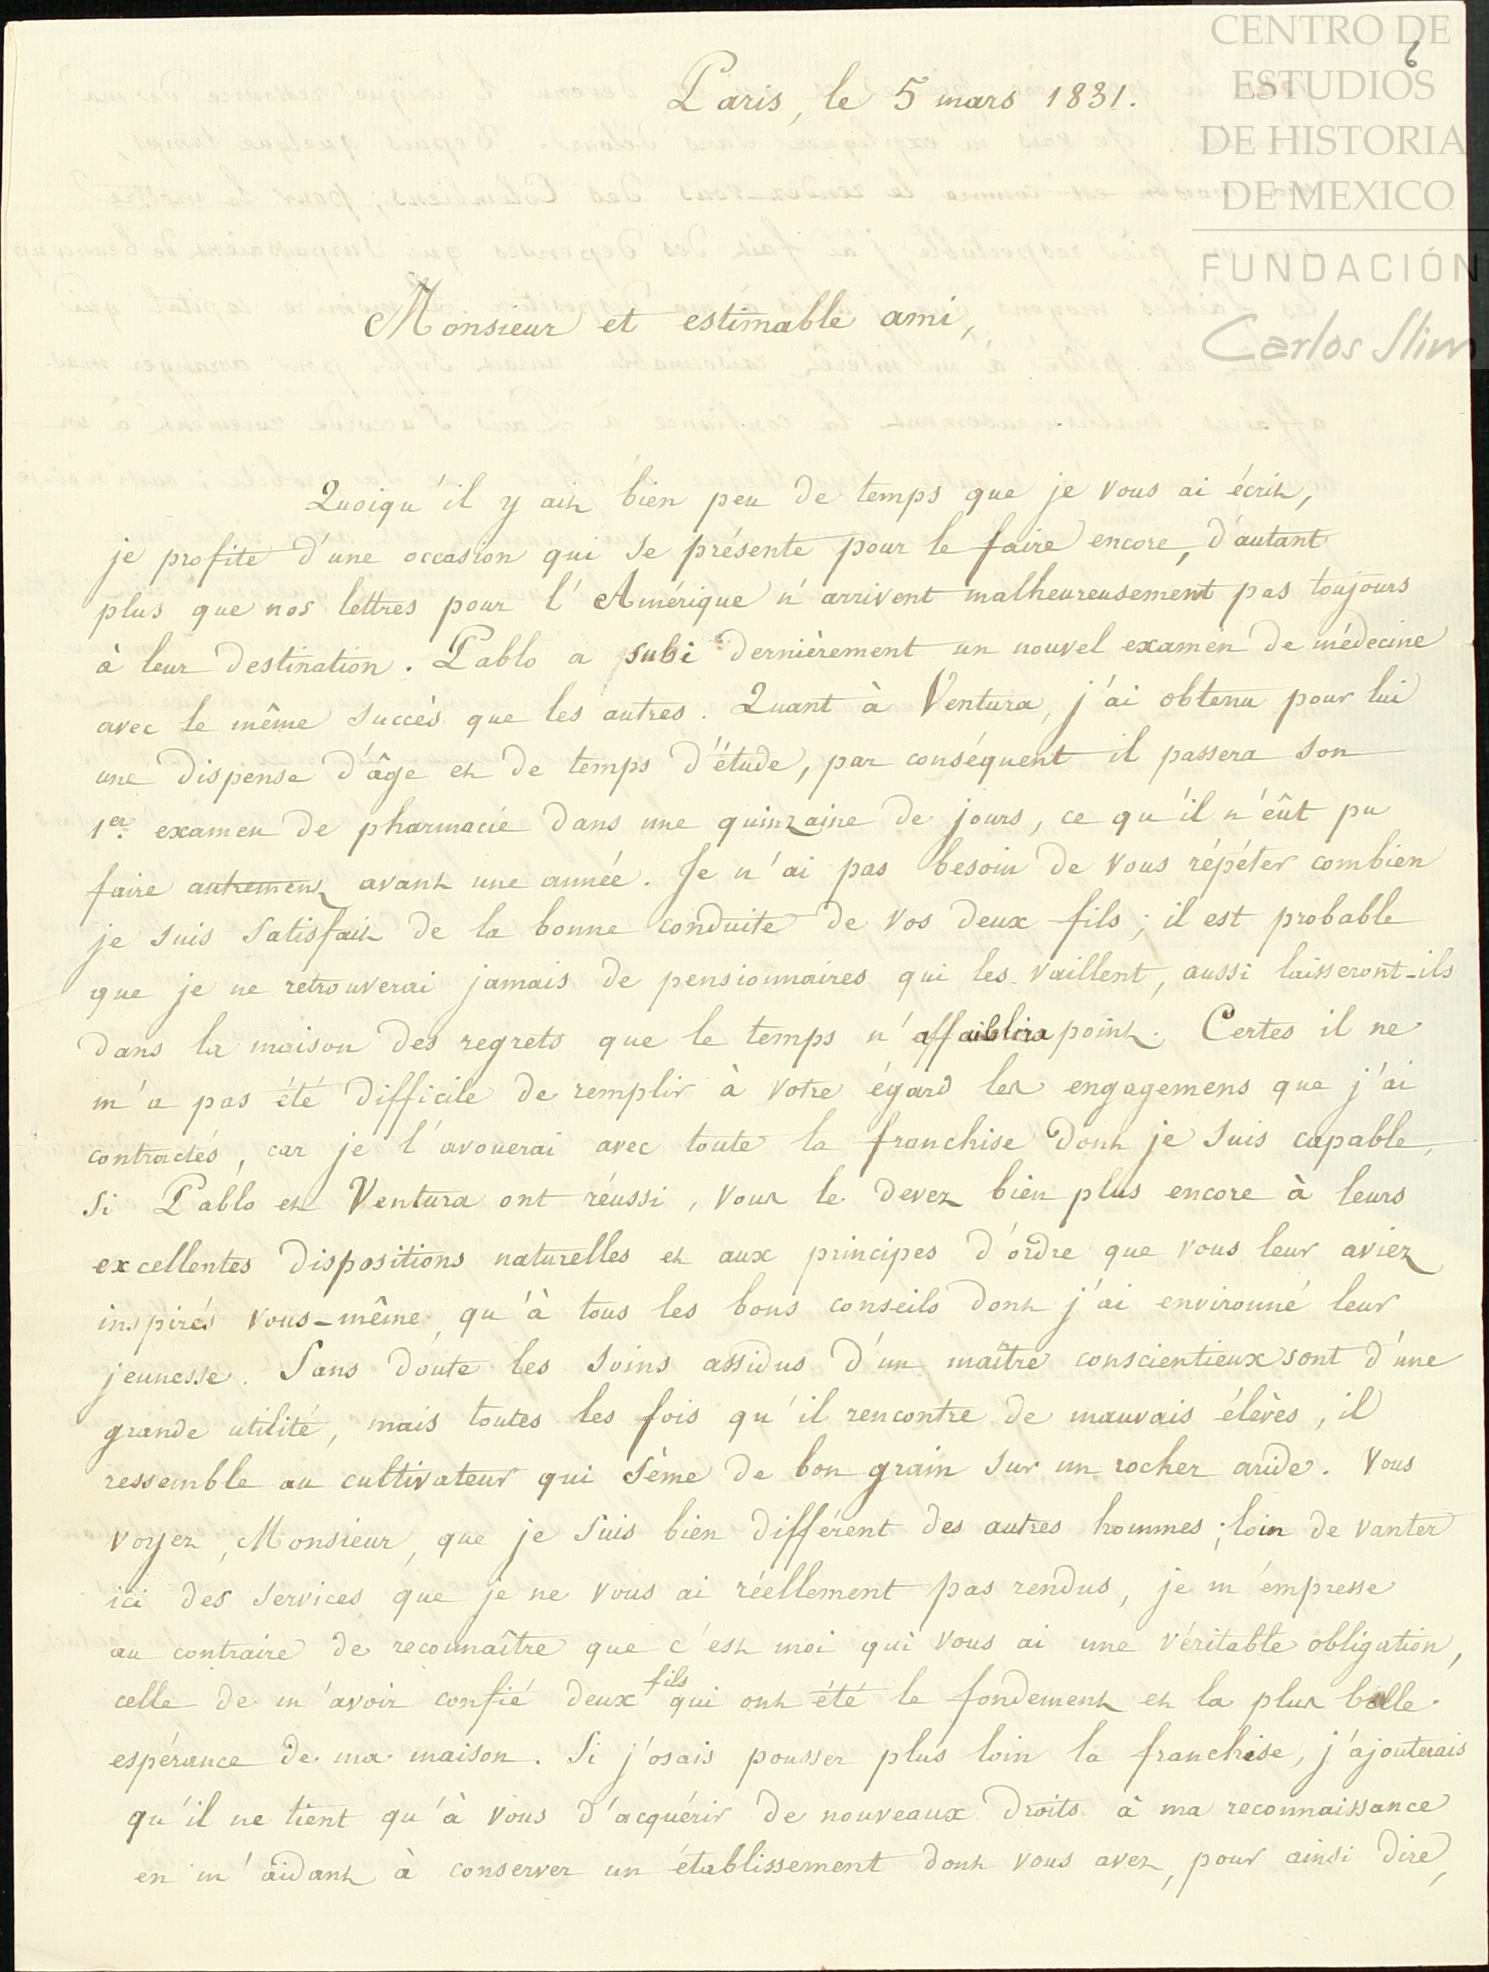 CENTRO DE
ESTUDIOS
DE HISTORIA
DE MEXICO
FUNDACIÓN
Carlos Slim
6
Paris, le 5 mars 1831.
Monsieur et estimable ami,
Quoiqu'il y ait bien peu de temps que je vous ai écrit,
je profite d'une occasion qui se présente pour le faire encore, d'autant
plus que nos lettres pour l'Amérique n'arrivent malheureusement pas toujours
à leur destination. Pablo a subi dernièrement un nouvel examen de médecine
avec le même succès que les autres. Quant à Ventura, j'ai obtenu pour lui
une dispense d'âge et de temps d'étude, par conséquent il passera son
1er examen de pharmacie dans une quinzaine de jours, ce qu'il n'eût pu
faire autrement avant une année. Je n'ai pas besoin de vous répéter combien
je suis satisfait de la bonne conduite de vos deux fils; il est probable
que je ne retrouverai jamais de pensionnaires qui les vaillent, aussi laisseront-ils
dans la maison des regrets que le temps n'affaiblira point. Certes il ne
m'a pas été difficile de remplir à votre égard les engagemens que j'ai
contractés, car je l'avouerai avec toute la franchise dont je suis capable,
si Pablo et Ventura ont réussi, vous le devez bien plus encore à leurs
excellentes dispositions naturelles et aux principes d'ordre que vous leur aviez
inspirés vous-même, qu'à tous les bons conseils dont j'ai environné leur
jeunesse. Sans doute les soins assidus d'un maître consciencieux sont d'une
grande utilité, mais toutes les fois qu'il rencontre de mauvais élèves, il
ressemble au cultivateur qui sème de bon grain sur un rocher aride. Vous
voyez, Monsieur, que je suis bien différent des autres hommes; loin de vanter
ici des services que je ne vous ai réellement pas rendus, je m'empresse
au contraire de reconnaître que c'est moi qui vous ai une véritable obligation,
celle de m'avoir confié deux fils qui ont été le fondement et la plus belle
espérance de ma maison. Si j'osais pousser plus loin la franchise, j'ajouterais
qu'il ne tient qu'à vous d'acquérir de nouveaux droits à ma reconnaissance
en m'aidant à conserver un établissement dont vous avez, pour ainsi dire,